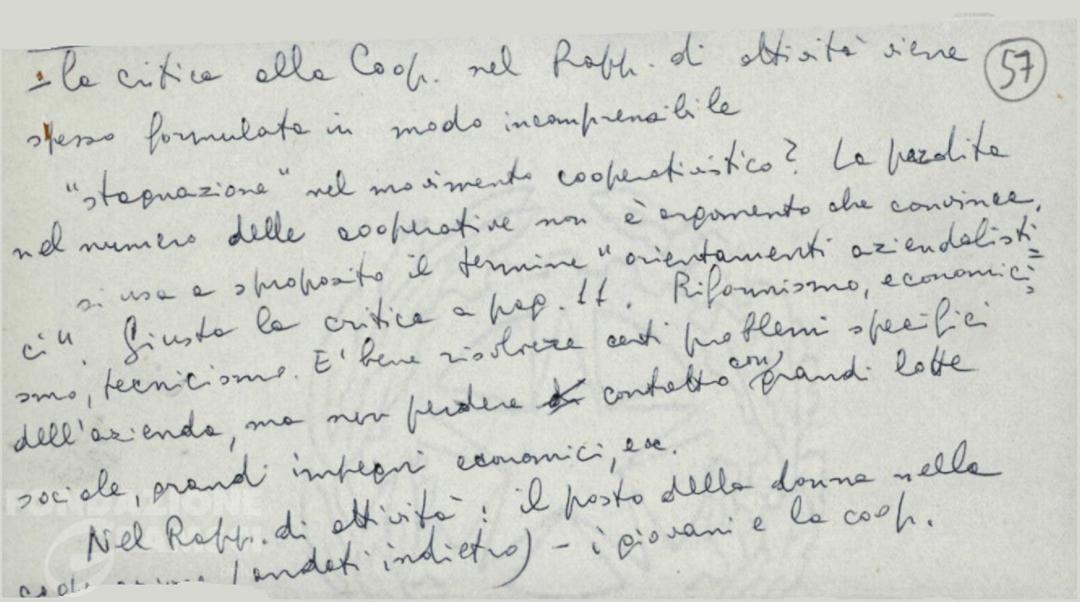 - La critica alla Coop. nel Rapp. di attività viene
57
spesso formulata in modo incomprensibile
"stagnazione" nel movimento cooperativistico? La perdita
nel numero delle cooperative non è argomento che convince.
si usa a sproposito il termine "orientamenti aziendalisti=
ci". Giusta la critica a pag. 17. Riformismo, economici=
smo, tecnicismo. E' bene risolvere certi problemi specifici
dell'azienda, ma non perdere contatto con grandi lotte
sociale, grandi impegni economici, ecc.
Nel Rapp. di attività: il posto della donna nella
(andati indietro) - i giovani e la coop.
FONDAZIONE